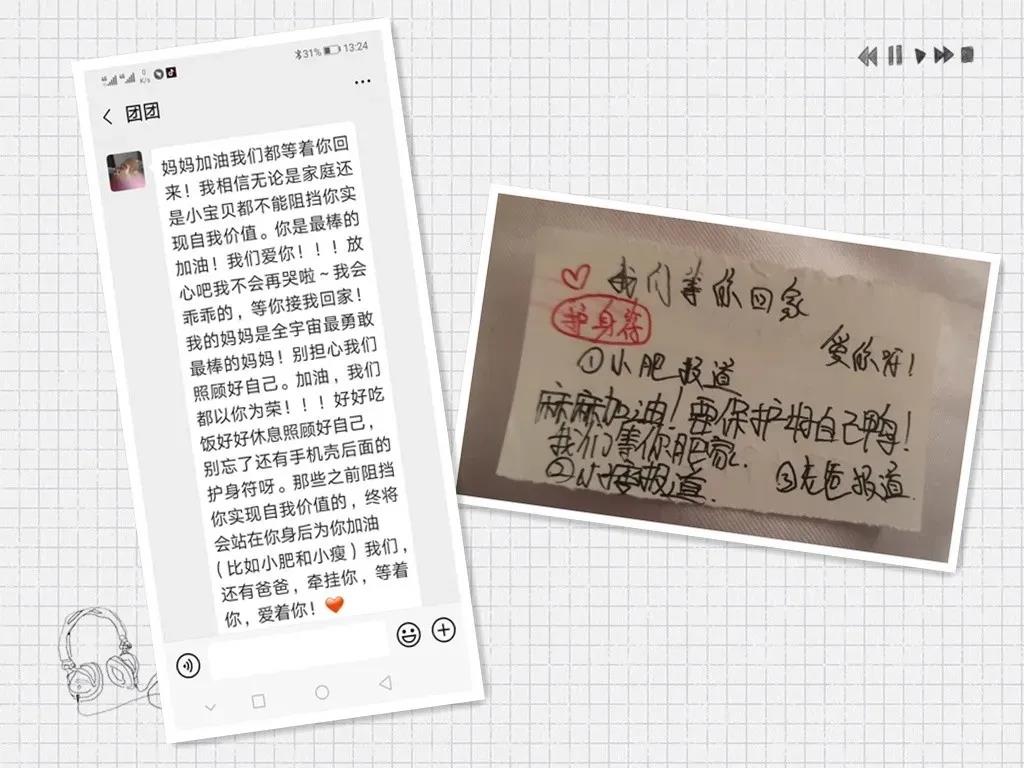 31% 13:24
团团
妈妈加油我们都等着你回
来！我相信无论是家庭还
是小宝贝都不能阻挡你实
现自我价值。你是最棒的
加油！我们爱你！！！放
心吧我不会再哭啦～我会
乖乖的，等你接我回家！
我的妈妈是全宇宙最勇敢
最棒的妈妈！别担心我们
照顾好自己。加油，我们
都以你为荣！！！好好吃
饭好好休息照顾好自己，
别忘了还有手机壳后面的
护身符呀。那些之前阻挡
你实现自我价值的，终将
会站在你身后为你加油
（比如小肥和小瘦）我们，
还有爸爸，牵挂你，等着
你，爱着你！
我们等你回家
护身符
爱你呀！
①小肥报道
麻麻加油！要保护好自己鸭！
我们等你肥家.
②小瘦报道.
③爸报道.